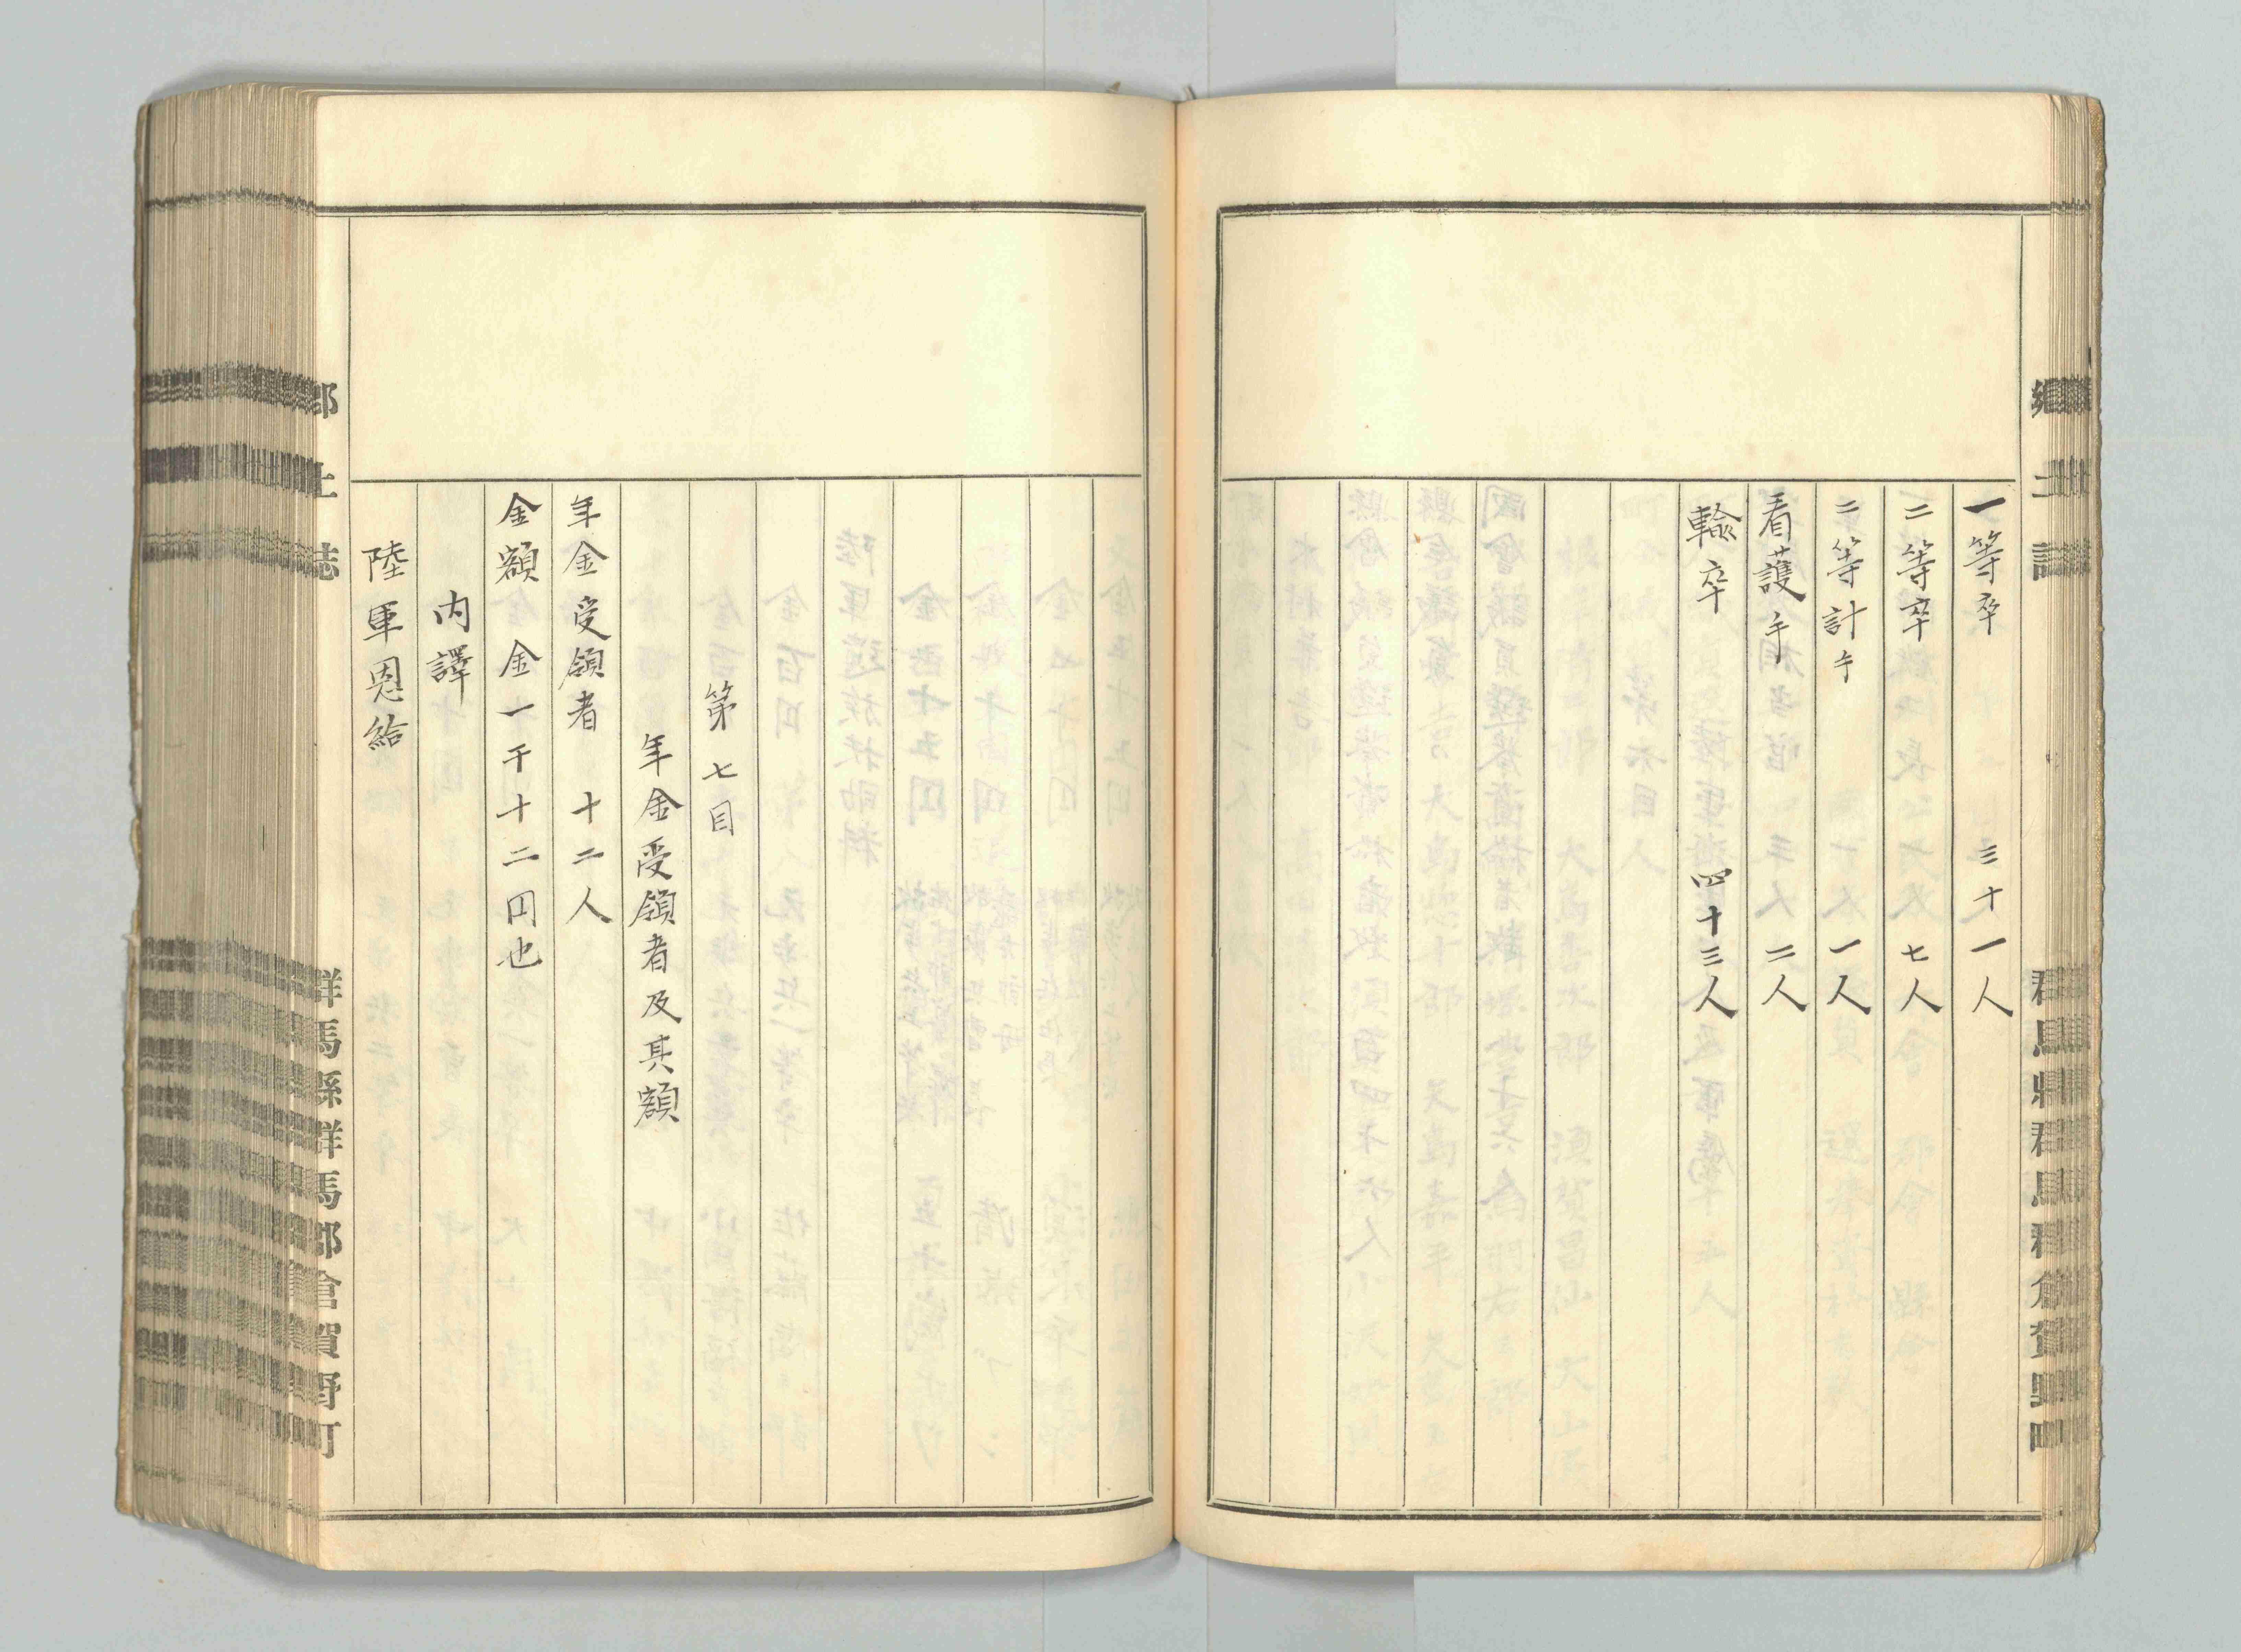 一等卒 三十一人
二等卒 七人
二等計手 一人
看護手 二人
輸卒 四十三人
第七目
年金受領者及其額
年金受領者 十二人
金額 金一千十二円也
内譯
陸軍恩給
郷土誌
群馬縣群馬郡倉賀野町